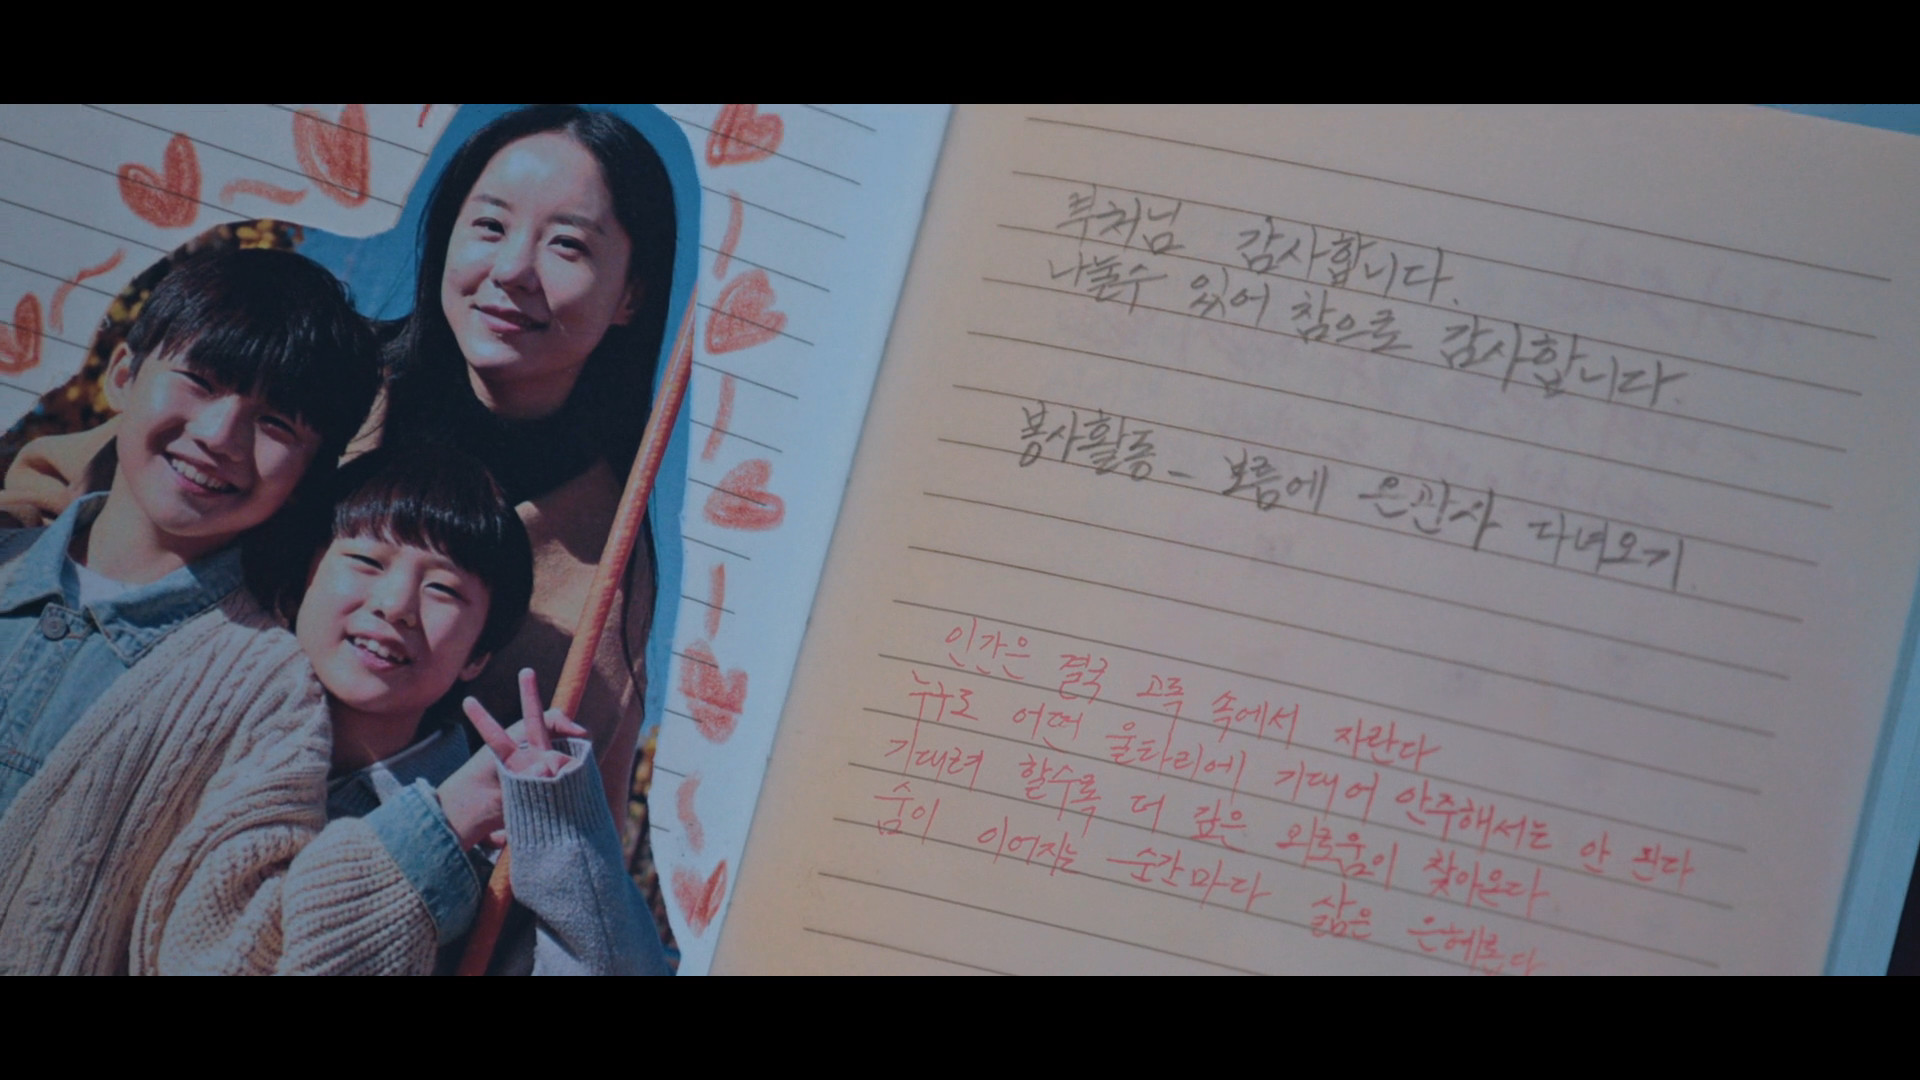 부처님 감사합니다.
나눌수 있어 참으로 감사합니다.
봉사활동 - 보름에 은관사 다녀오기.
인간은 결국 고독 속에서 자란다
누구도 어떤 울타리에 기대어 안주해서는 안 된다
기대려 할수록 더 깊은 외로움이 찾아온다
숨이 이어지는 순간마다 삶은 은혜롭다